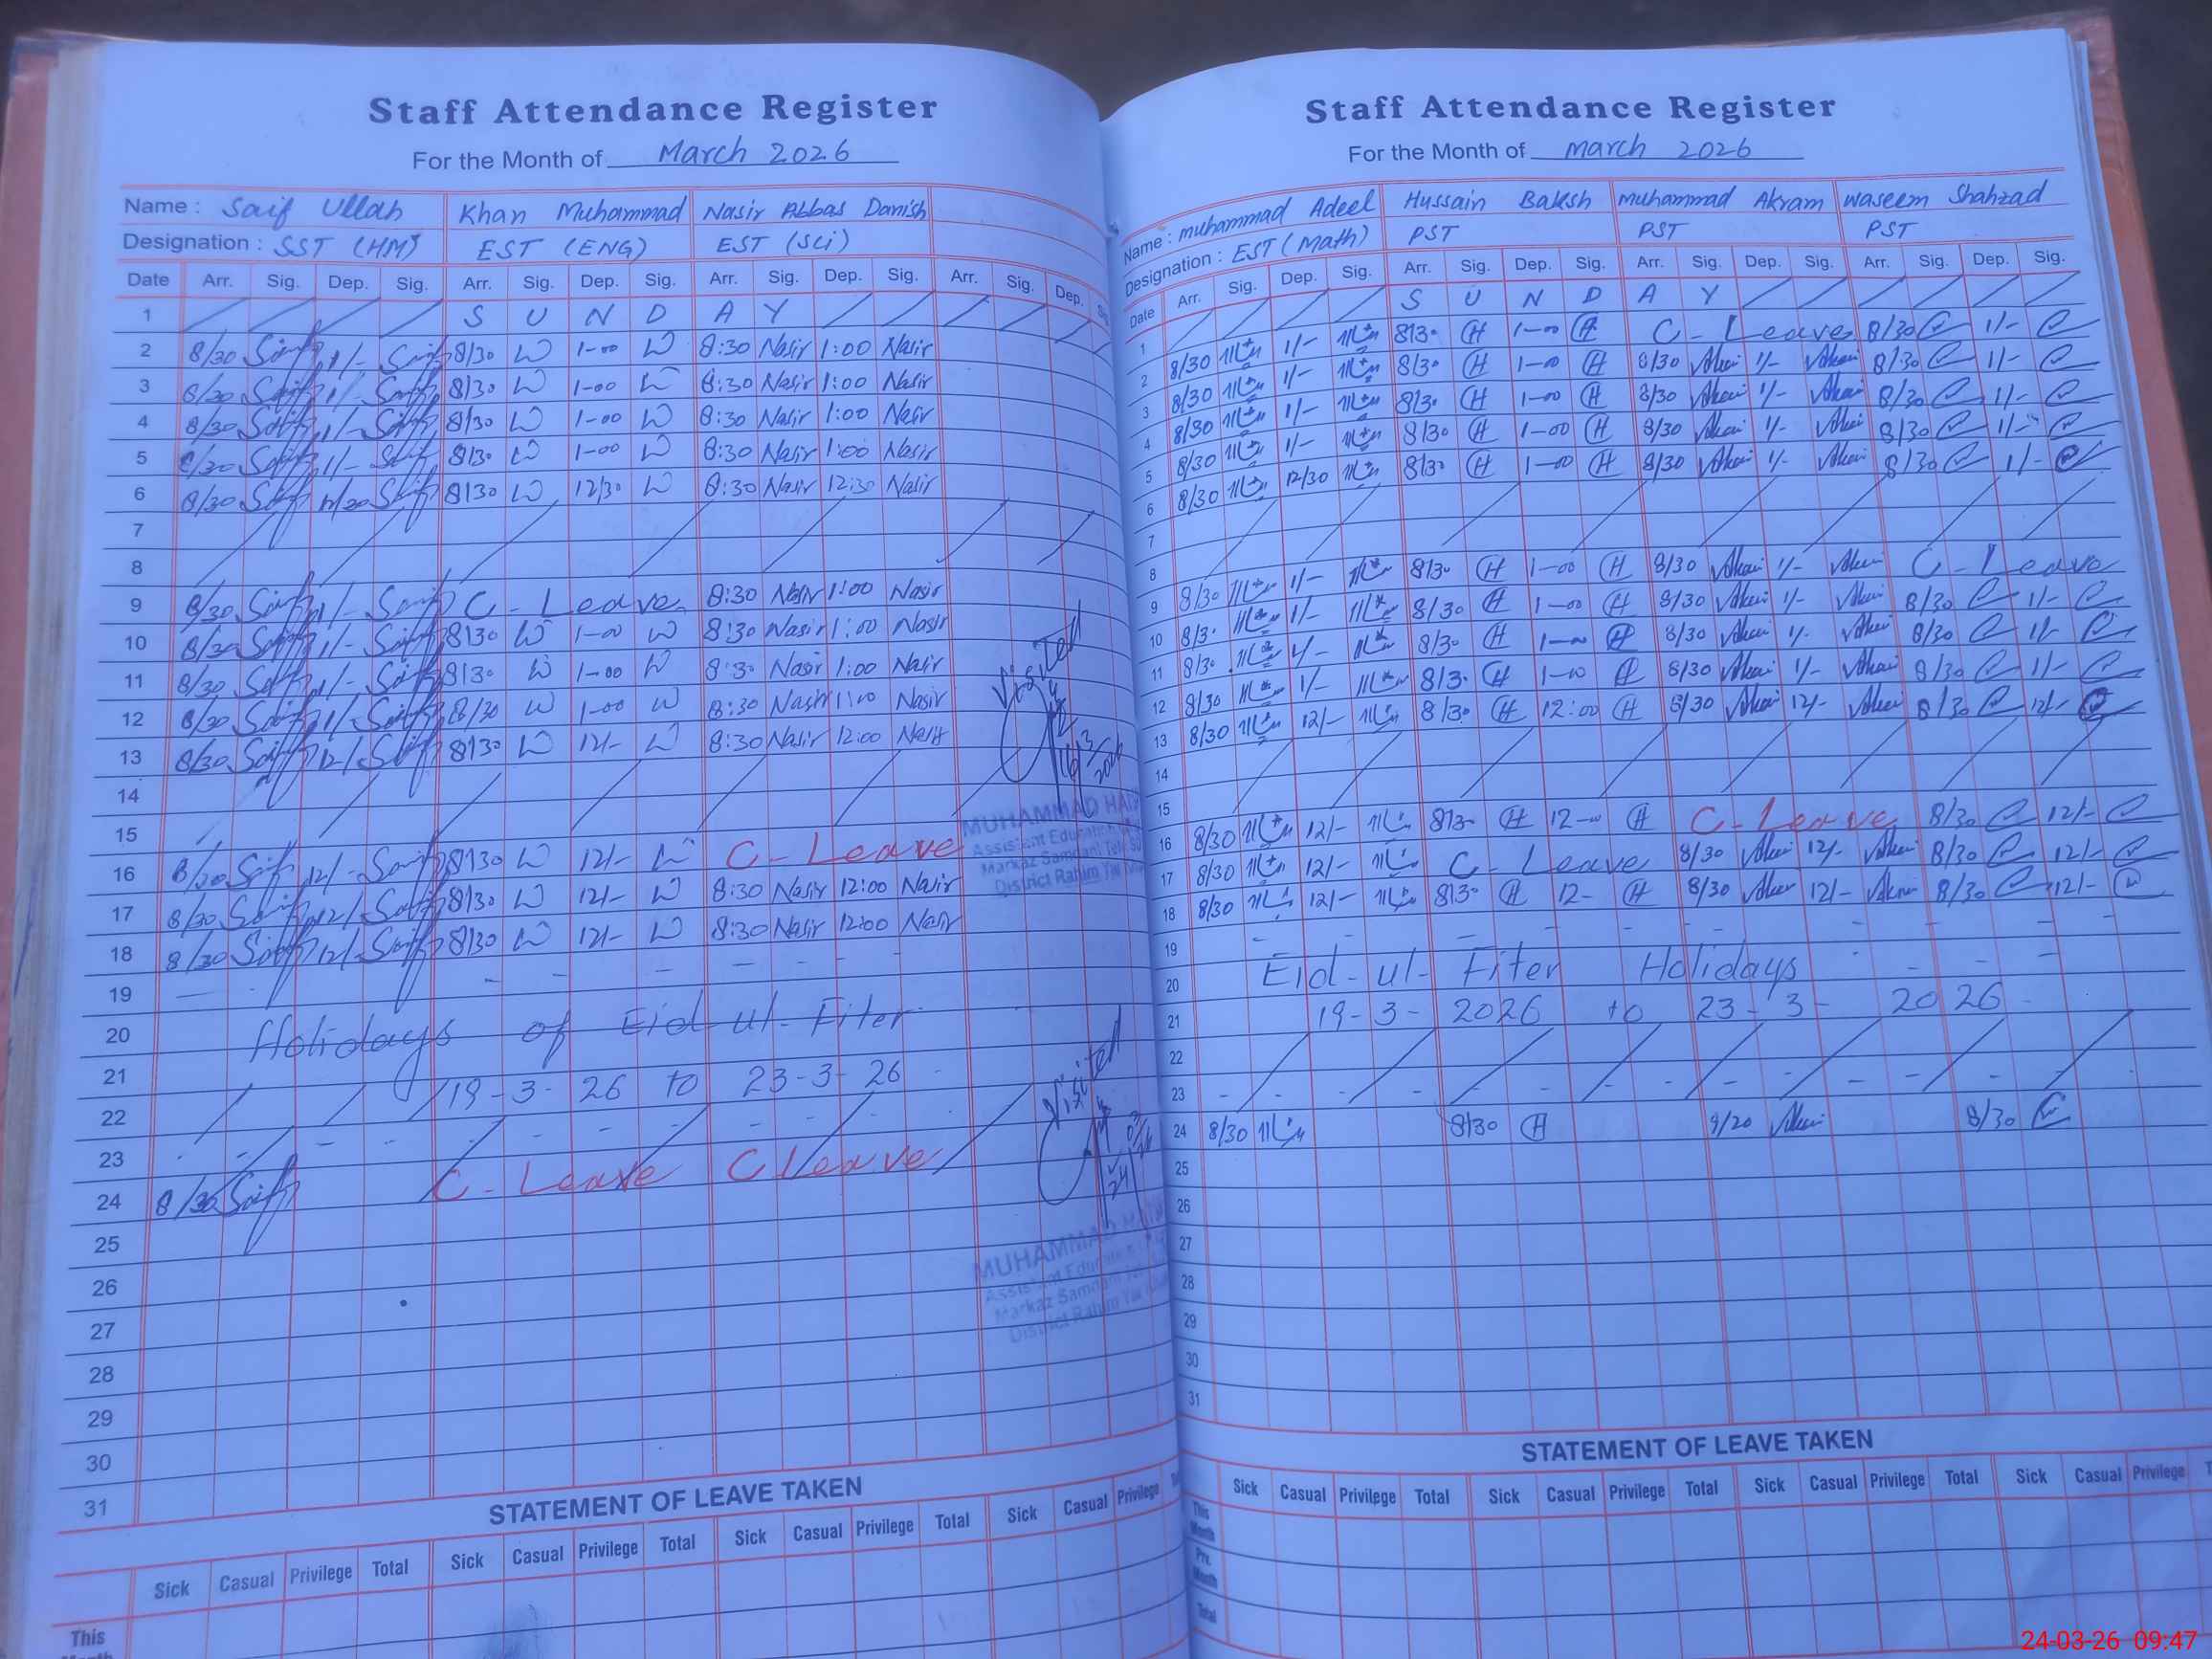 Staff Attendance Register
For the Month of March 2026
Name: Saif Ullah Khan Muhammad Nasir Abbas Danish
Designation: SST (HM) EST (ENG) EST (Sci)
Date Arr. Sig. Dep. Sig. Arr. Sig. Dep. Sig. Arr. Sig. Dep. Sig. Arr. Sig. Dep.
1 S U N D A Y
2 8/30 Saif 1/- Saif 8/30 1-00 8:30 Nasir 1:00 Nasir
3 8/30 Saif 1/- Saif 8/30 1-00 8:30 Nasir 1:00 Nasir
4 8/30 Saif 1/- Saif 8/30 1-00 8:30 Nasir 1:00 Nasir
5 8/30 Saif 1/- Saif 8/30 1-00 8:30 Nasir 1:00 Nasir
6 8/30 Saif 12/30 Saif 8/30 12/30 8:30 Nasir 12:30 Nasir
7
8
9 8/30 Saif 1/- Saif C-Leave 8:30 Nasir 1:00 Nasir
10 8/30 Saif 1/- Saif 8/30 1-00 8:30 Nasir 1:00 Nasir
11 8/30 Saif 1/- Saif 8/30 1-00 8:30 Nasir 1:00 Nasir
12 8/30 Saif 1/- Saif 8/30 1-00 8:30 Nasir 1:00 Nasir
13 8/30 Saif 12/- Saif 8/30 12/- 8:30 Nasir 12:00 Nasir
14
15
16 8/30 Saif 12/- Saif 8/30 12/- C-Leave
17 8/30 Saif 12/- Saif 8/30 12/- 8:30 Nasir 12:00 Nasir
18 8/30 Saif 12/- Saif 8/30 12/- 8:30 Nasir 12:00 Nasir
19
20 Holidays of Eid-ul-Fiter
21 19-3-26 to 23-3-26
22
23
24 8/30 Saif C-Leave C Leave
25
26
27
28
29
30
31
Visited
16/3/2026
MUHAMMAD
Assistant Education
Markaz
District Rahim Yar
Visited
24/03/26
MUHAMMAD
Assistant Education
Markaz
District Rahim Yar
STATEMENT OF LEAVE TAKEN
Sick Casual Privilege Total Sick Casual Privilege Total Sick Casual Privilege Total Sick Casual Privilege
This
Staff Attendance Register
For the Month of march 2026
Name: muhammad Adeel Hussain Baksh muhammad Akram waseem Shahzad
Designation: EST (Math) PST PST PST
Date Arr. Sig. Dep. Sig. Arr. Sig. Dep. Sig. Arr. Sig. Dep. Sig. Arr. Sig. Dep. Sig.
1 S U N D A Y
2 8/30 1/- 8/30 H 1-00 H C-Leave 8/30 1/-
3 8/30 1/- 8/30 H 1-00 H 8/30 1/- 8/30 1/-
4 8/30 1/- 8/30 H 1-00 H 8/30 1/- 8/30 1/-
5 8/30 1/- 8/30 H 1-00 H 8/30 1/- 8/30 1/-
6 8/30 12/30 8/30 H 1-00 H 8/30 1/- 8/30 1/-
7
8
9 8/30 1/- 8/30 H 1-00 H 8/30 1/- C-Leave
10 8/30 1/- 8/30 H 1-00 H 8/30 1/- 8/30 1/-
11 8/30 1/- 8/30 H 1-00 H 8/30 1/- 8/30 1/-
12 8/30 1/- 8/30 H 1-00 H 8/30 1/- 8/30 1/-
13 8/30 12/- 8/30 H 12:00 H 8/30 12/- 8/30 12/-
14
15
16 8/30 12/- 8/30 H 12-00 H C-Leave 8/30 12/-
17 8/30 12/- C-Leave 8/30 12/- 8/30 12/-
18 8/30 12/- 8/30 H 12- H 8/30 12/- 8/30 12/-
19
20 Eid-ul-Fiter Holidays
21 19-3-2026 to 23-3-2026
22
23
24 8/30 8/30 H 8/30
25
26
27
28
29
30
31
STATEMENT OF LEAVE TAKEN
Sick Casual Privilege Total Sick Casual Privilege Total Sick Casual Privilege Total Sick Casual Privilege
This Month
Pre. Month
Total
24-03-26 09:47